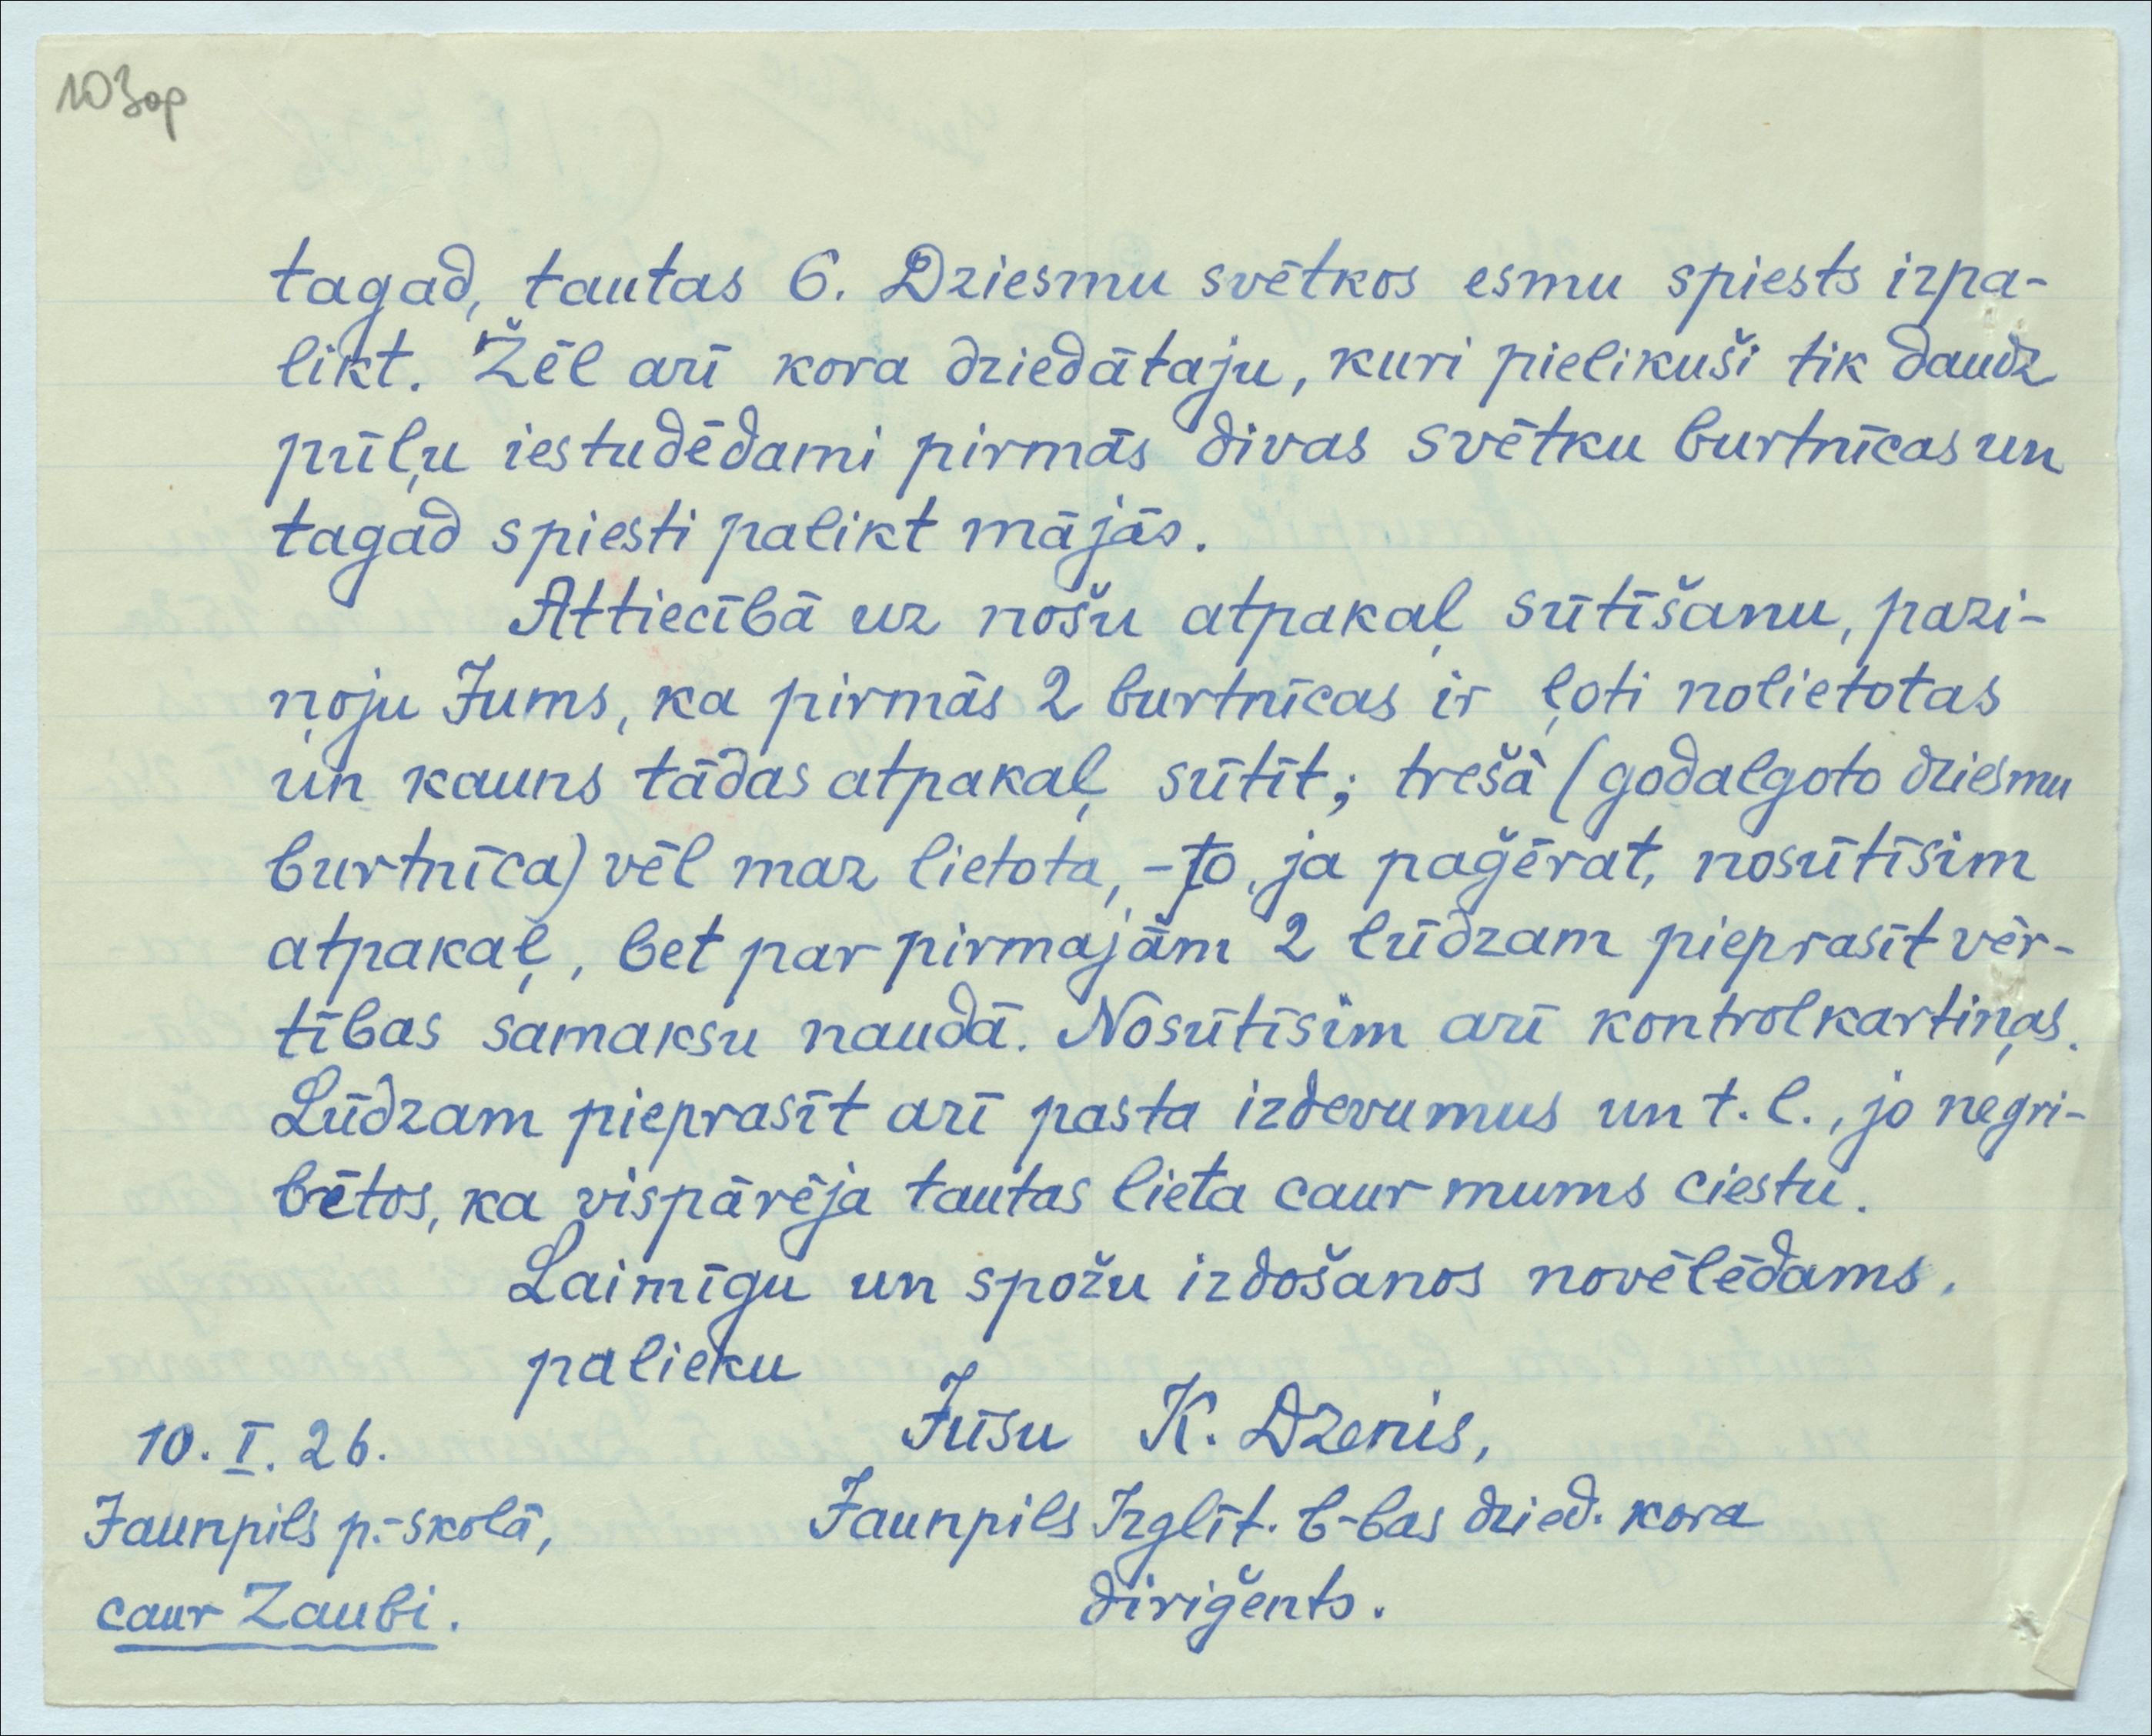 103op
tagad, tautas 6. Dziesmu svētkos esmu spiests izpa-
likt. Žēl arī kora dziedātaju, kuri pielikuši tik daudz
pūļu iestudēdami pirmās divas svētku burtnīcas un
tagad spiesti palikt mājās.
Attiecībā uz nošu atpakaļ sūtīšanu, pazi-
ņoju Jums, ka pirmās 2 burtnīcas ir ļoti nolietotas
un kauns tādas atpakaļ sūtīt; trešā (godalgoto dziesmu
burtnīca) vēl maz lietota, - to, ja paģērat, nosūtīsim
atpakaļ, bet par pirmajām 2 lūdzam pieprasīt vēr-
tības samaksu naudā. Nosūtīsim arī kontrolkartiņas.
Lūdzam pieprasīt arī pasta izdevumus un t. l., jo negri-
bētos, ka vispārēja tautas lieta caur mums ciestu.
Laimīgu un spožu izdošanos novēlēdams,
palieku
Jūsu K. Dzenis,
Jaunpils Izglīt. b-bas dzied. kora
diriģents.
10. I. 26.
Jaunpils p.-skolā,
caur Zaubi.